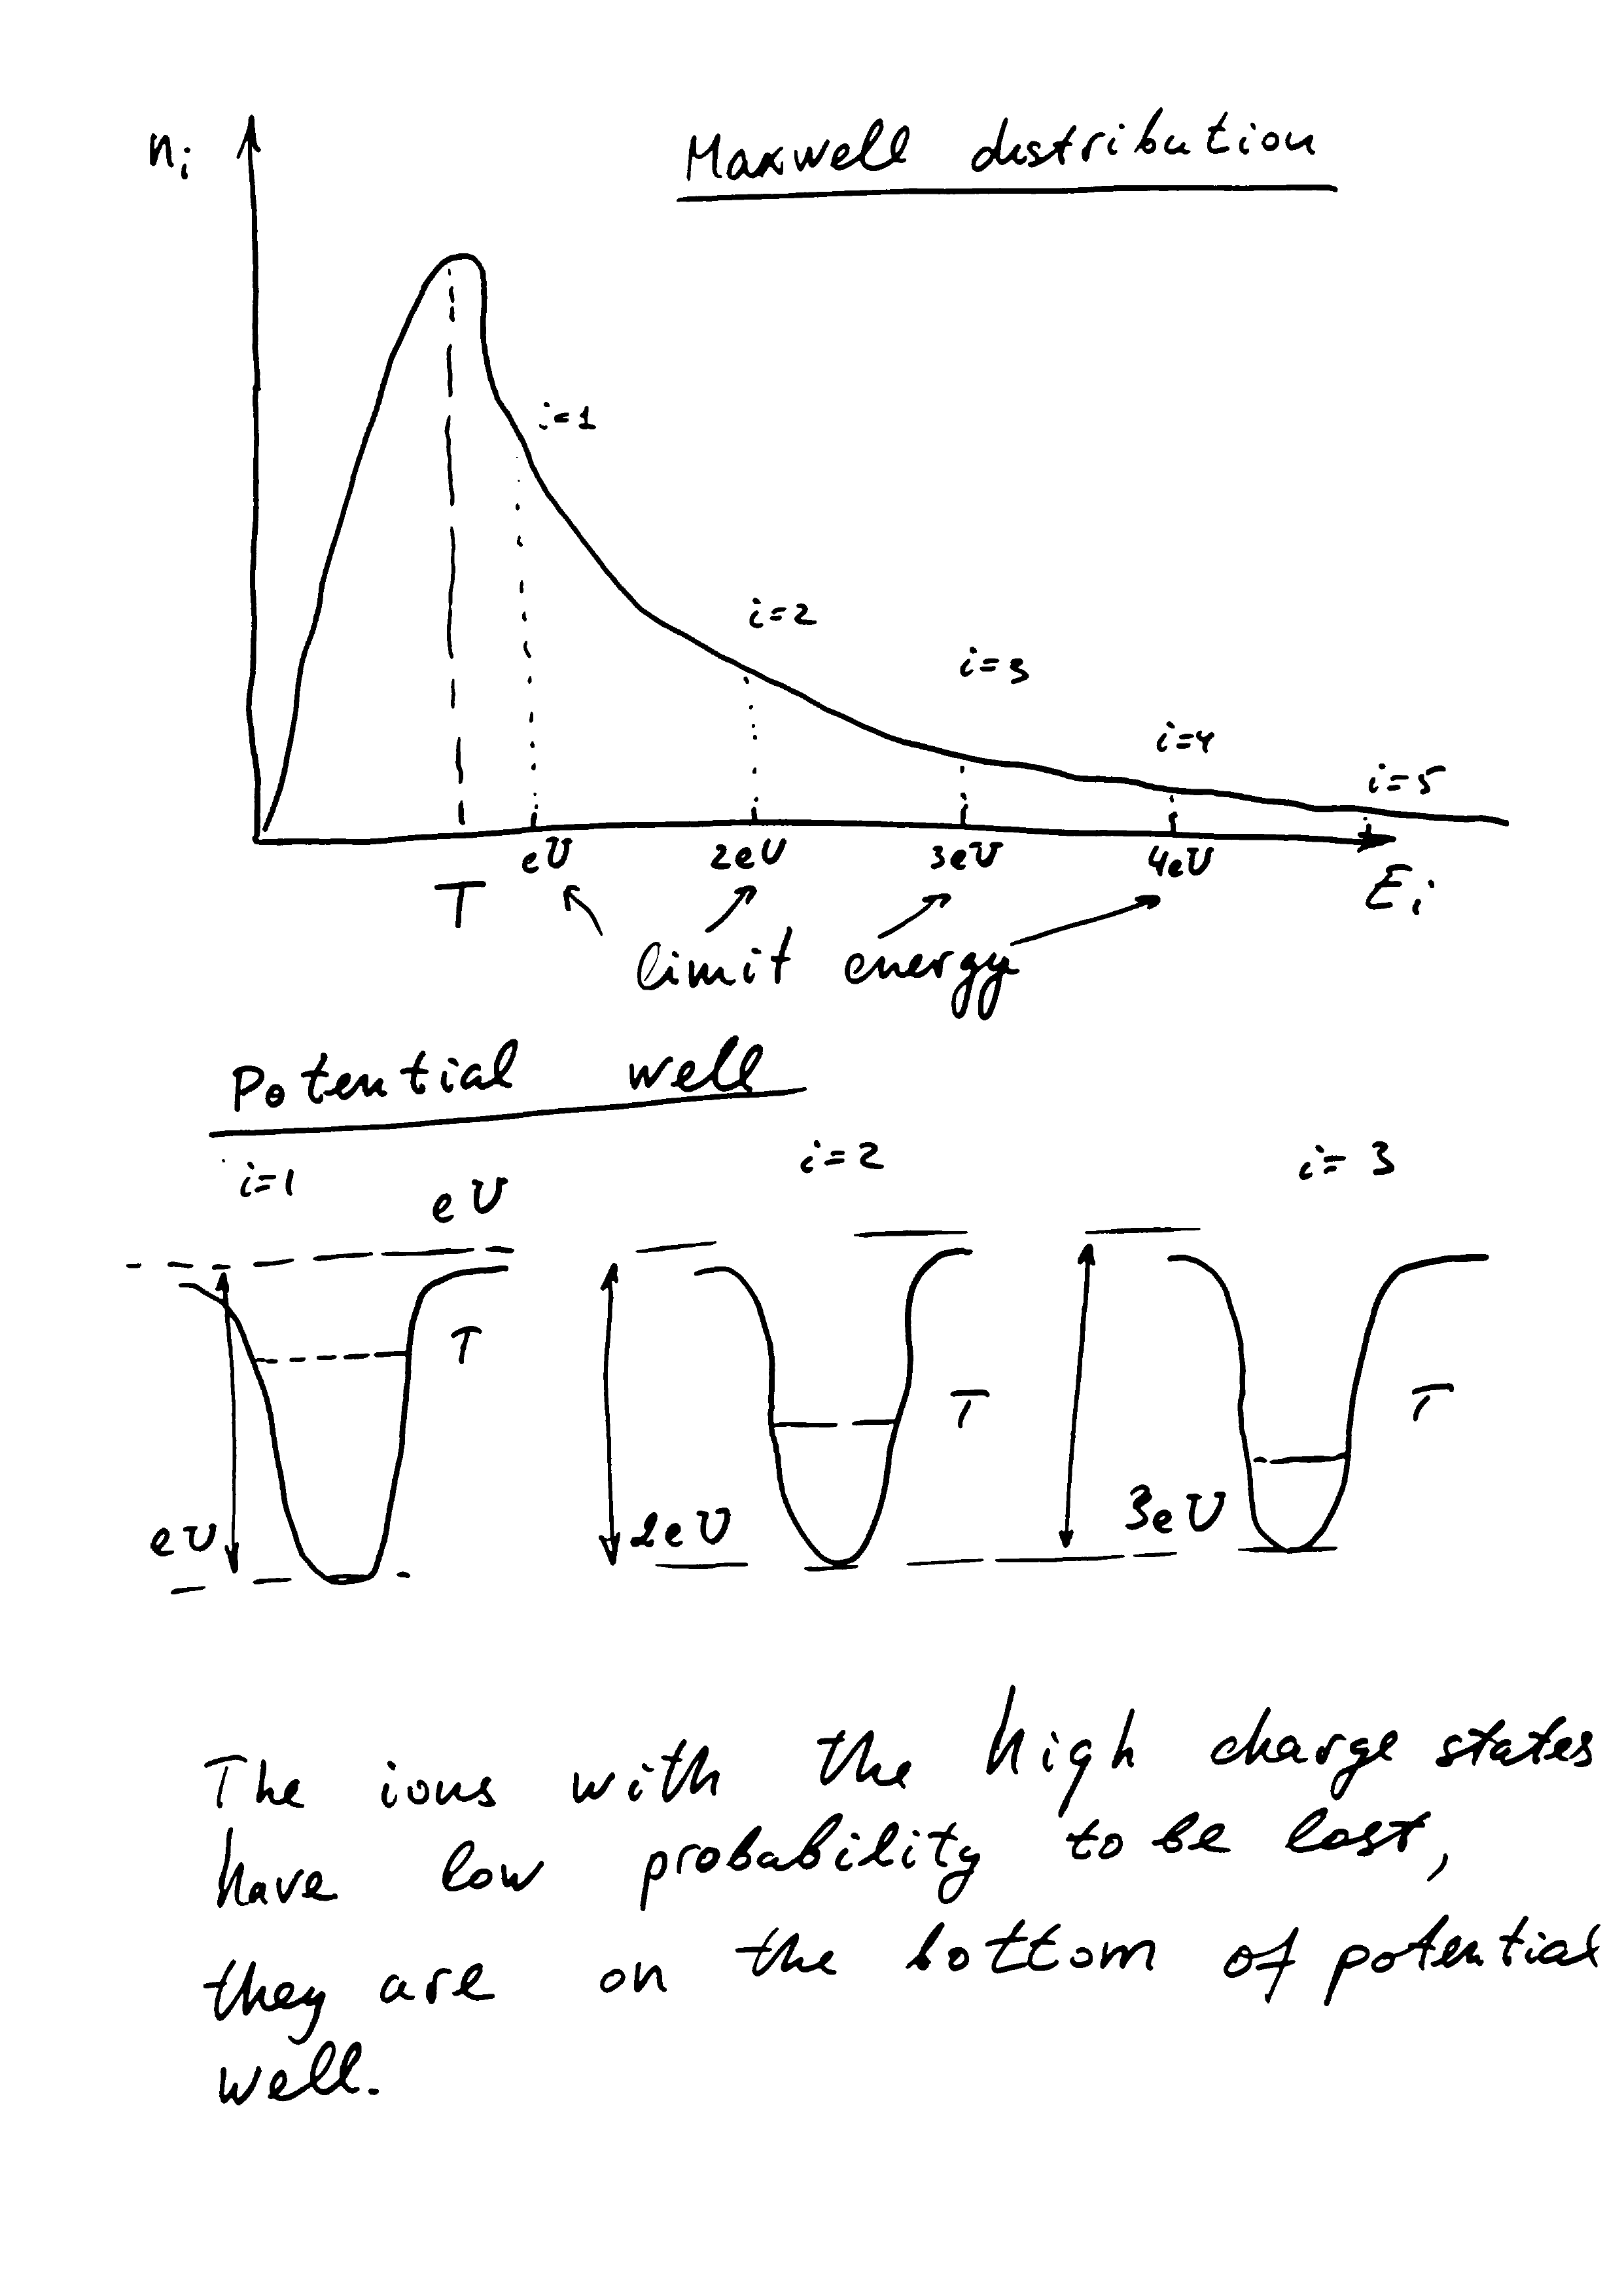 Maxwell distribution
nᵢ
i=1
i=2
i=3
i=4
i=5
eU 2eU 3eU 4eU
T Eᵢ
limit energy
Potential well
i=1 i=2 i=3
eU
T T T
eU 2eU 3eU
The ions with the high charge states
have low probability to be lost,
they are on the bottom of potential
well.